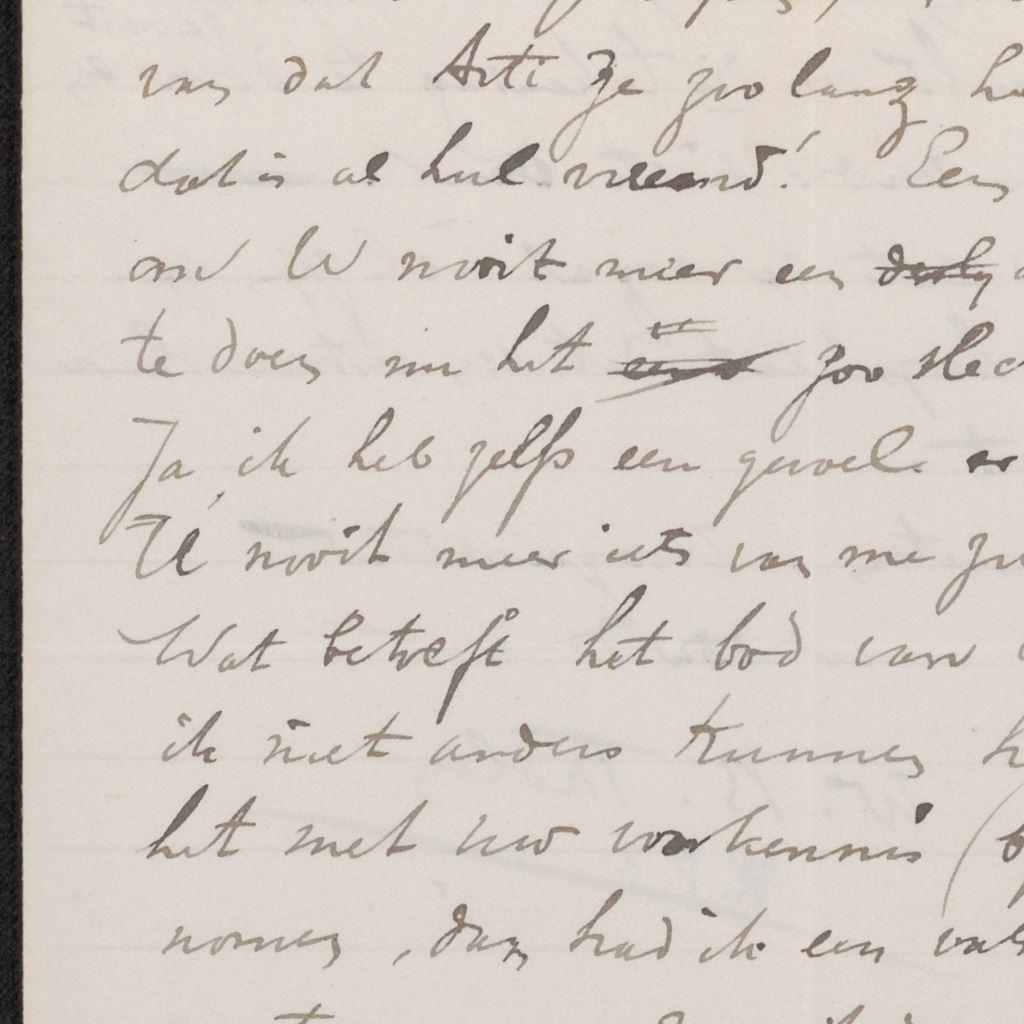 van dat Arti ze zoo lang
dat is al heel vreemd! Een
om U nooit meer een
te doen nu het zoo slec
Ja, ik heb zelfs een gevoel er
U nooit meer iets van me zu
Wat betreft het bod van
ik niet anders kunnen h
het met uw voorkennis (
nomen, dan had ik een